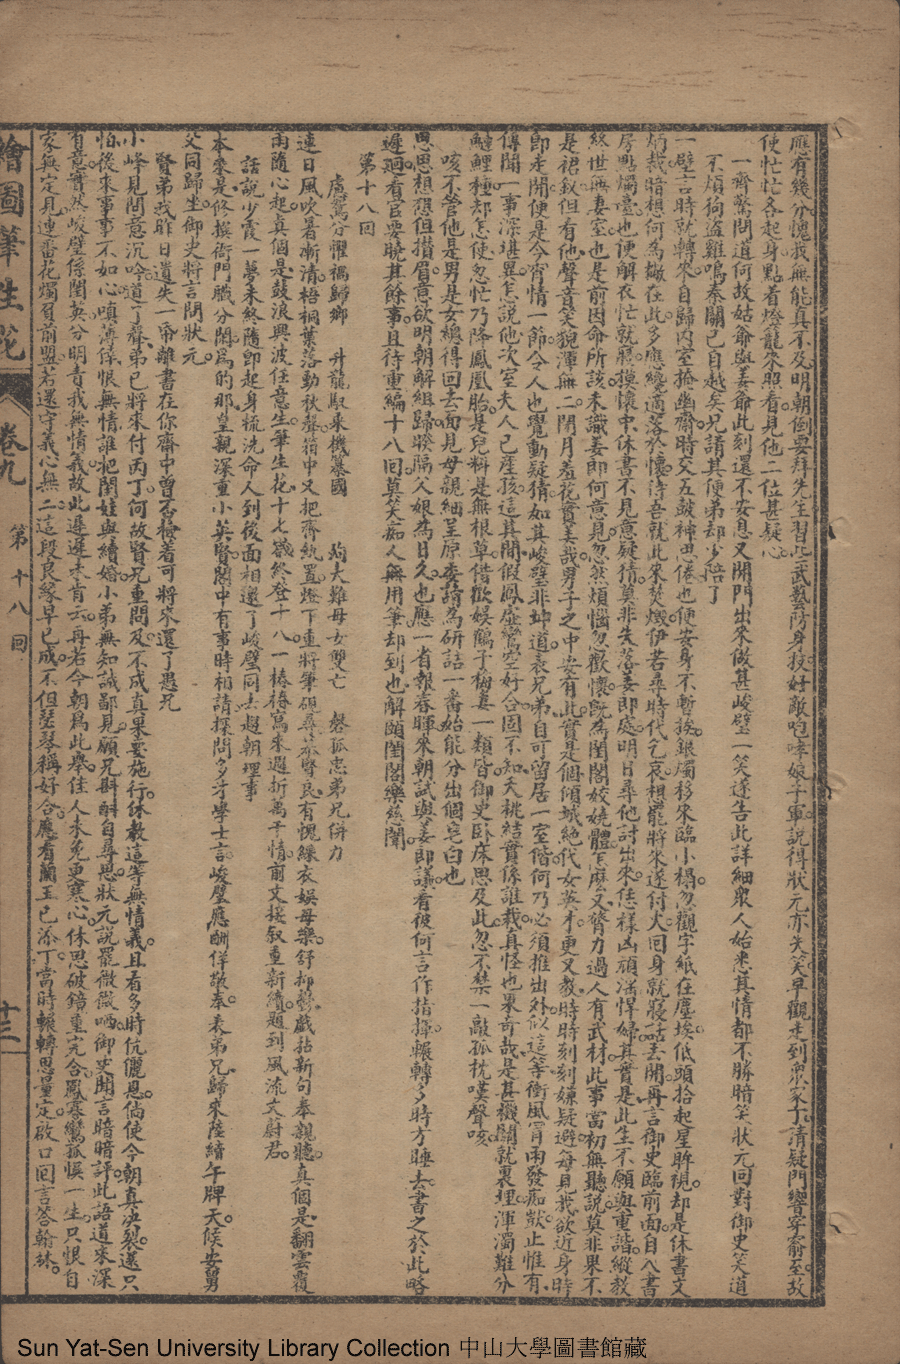 應有幾分愧我無能真不及明朝倒要拜先生習些武藝防身技好敵咆哮娘子軍說得狀元亦失笑早觀走到眾家丁請疑門響穿窬至故
使忙忙各起身點看燈籠來照看見他二位甚疑心
一齊驚問道何故姑爺與姜爺此刻還不安息又開門出來做甚峻壁一笑遂告此詳細眾人始悉其情都不勝暗笑狀元回對御史笑道
不煩狗盜雞鳴秦關已自越矣兄請其便弟却少陪了
一壁言時就轉來自歸內室掩幽齋時交五鼓神思倦也便安身不暫挨銀燭移來臨小榻忽觀字紙在塵埃低頭拾起星眸現却是休書文
炳哉暗想何為撇在此多應纔適落於懷待吾就此來焚燬伊若尋時代乞哀想罷將來遂付火回身就寢話丟開再言御史臨前面自入書
房點燭臺也便解衣忙就寢摸懷中休書不見意疑猜莫非失落姜郎處明日尋他討出來怎樣凶頑潑悍婦其實是此生不願與重諧縱教
終世無妻室也是前因命所該未識姜郎何意見忽然煩惱忽歡懷既為閨閣姣嬈體怎麼又膂力過人有武材此事當初無聽說莫非果不
是裙釵但有他聲音笑貌渾無二閉月羞花賽美哉男子之中安有此實是個傾城絕代女英才更又教時時刻刻嫌疑避每見我欲近身時
即走開便是今宵情一節令人也覺動疑猜如其峻壁非坤道表兄弟自可留居一室偕何乃必須推出外似這等衝風冒雨發痴獃止惟有
傳聞一事深堪異怎說他次室夫人已產孩這其間假鳳虛鸞空好合固不知夭桃結實係誰栽真怪也果奇哉是甚機關就裏埋渾濁難分
鰱鯉種却怎使忽忙乃降鳳凰胎是兒料是無根草借歡娛鶴子梅妻一類皆御史臥床思及此忽不禁一敲孤枕嘆聲咳
咳不管他是男是女總得回去面見母親細呈原委請為研詰一番始能分出個皂白也
思思想想但攢眉意欲明朝解組歸暌隔父娘為日久也應一省報春暉來朝試與姜郎議看彼何言作指揮輾轉多時方睡去書之於此略
遲迴看官要曉其餘事且待重編十八回莫笑痴人無用筆却到也解頤閨閣樂慈闈
第十八回
虛鸞分懼禍歸鄉　升龍馭來機纂國　殉大難母女雙亡　磬孤忠弟兄併力
連日風吹暑漸清梧桐葉落動秋聲箱中又把齊紈置燈下重將筆硯尋菽腎艮有愧綵衣娛母樂舒抑鬱戲拈新句奉親聽真個是翻雲覆
雨隨心起真個是鼓浪興波任意生筆生花十七載終登十八一樁樁寫來遇折萬千情前文接叙重新續題到風流文蔚君
話說少霞一夢未終隨即起身梳洗命人到後面相邀了峻壁同去趨朝理事
本來是修撰衙門職分閑為的那皇親深重小英賢閣中有事時相請探問多才學士言峻壁應酬佯敬奉表弟兄歸來陸續午牌天候安舅
父同歸坐御史將言問狀元
賢弟我昨日遺失一帋離書在你齋中曾否檢着可將來還了愚兄
小峰見問意沉吟道了聲弟已將來付丙丁何故賢兄重問及不成真果要施行休教這等無情義且看多時伉儷恩倘使今朝真決裂還只
怕後來事事不如心嗔薄倖恨無情誰把閨娃與續婚小弟無知識鄙見願兄斟酌自尋思狀元說罷微微哂御史聞言暗暗評此語道來深
有意實然峻壁係閨英分明責我無情義故此遲遲未肯云再若今朝為此舉佳人未免更寒心休思破鏡重完合鳳寡鸞孤悞一生只恨自
家無定見連番花燭負前盟若還守義心無二這段良緣早已成不但瑟琴稱好合應有蘭玉已添丁當時輾轉思量定啟口回言答翰林
繪圖筆生花
卷九
第十八回
十三
Sun Yat-Sen University Library Collection 中山大學圖書館藏